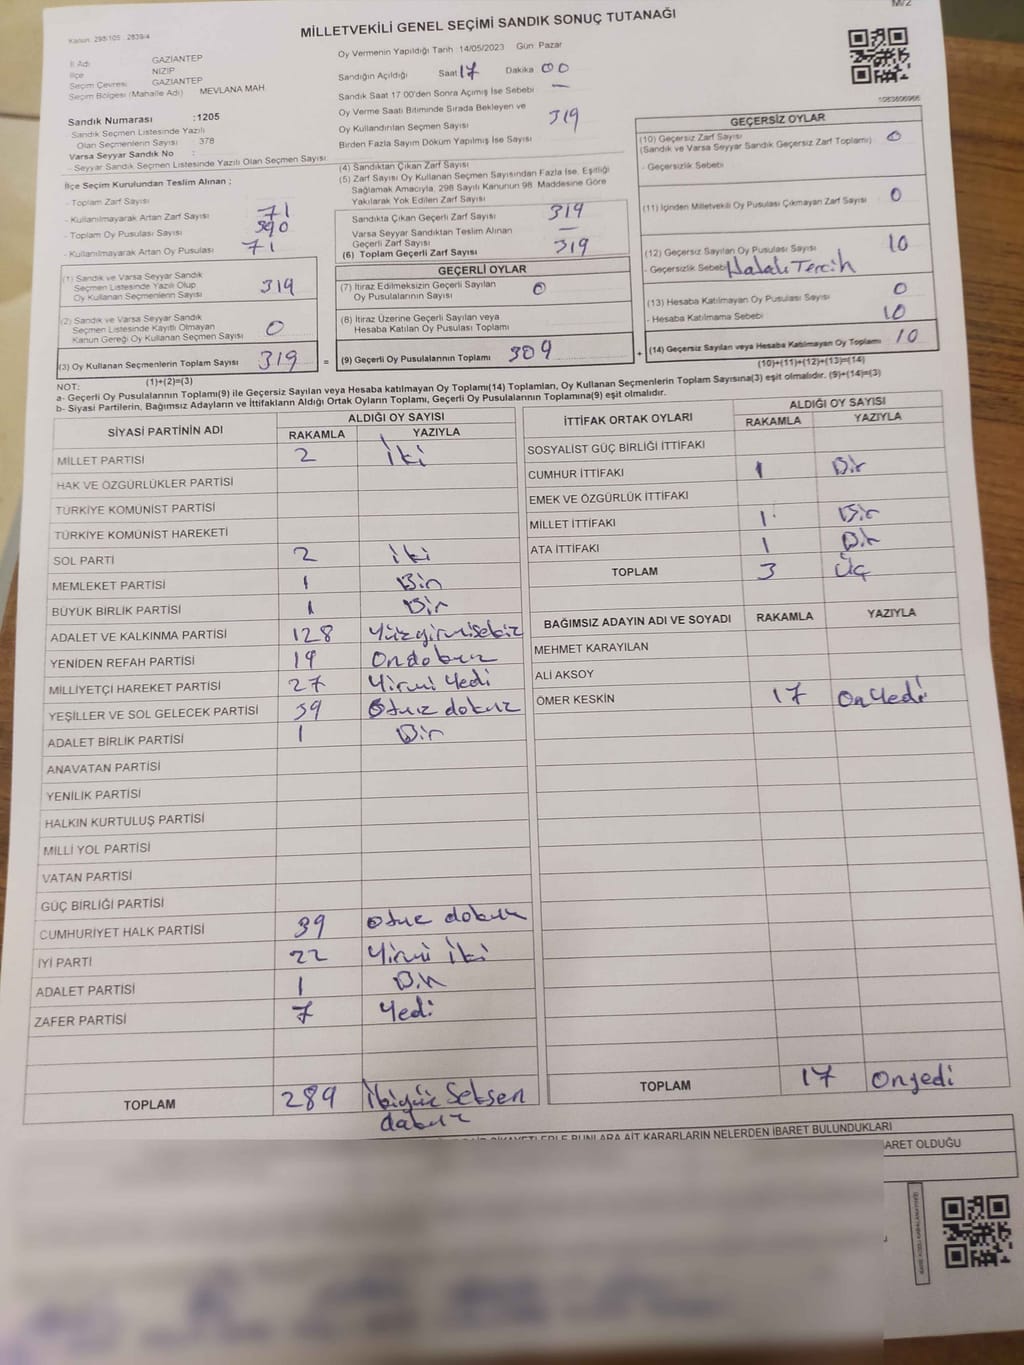 M/2
Kanun: 298/105 : 2839/4
MİLLETVEKİLİ GENEL SEÇİMİ SANDIK SONUÇ TUTANAĞI
İl Adı GAZİANTEP
İlçe NİZİP
Seçim Çevresi GAZİANTEP
Seçim Bölgesi (Mahalle Adı) MEVLANA MAH.
Sandık Numarası :1205
- Sandık Seçmen Listesinde Yazılı
Olan Seçmenlerin Sayısı 378
Varsa Seyyar Sandık No :
- Seyyar Sandık Seçmen Listesinde Yazılı Olan Seçmen Sayısı
İlçe Seçim Kurulundan Teslim Alınan ;
- Toplam Zarf Sayısı
- Kullanılmayarak Artan Zarf Sayısı 71
- Toplam Oy Pusulası Sayısı 390
- Kullanılmayarak Artan Oy Pusulası 71
(1) Sandık ve Varsa Seyyar Sandık
Seçmen Listesinde Yazılı Olup
Oy Kullanan Seçmenlerin Sayısı 319
(2) Sandık ve Varsa Seyyar Sandık
Seçmen Listesinde Kayıtlı Olmayan
Kanun Gereği Oy Kullanan Seçmen Sayısı 0
(3) Oy Kullanan Seçmenlerin Toplam Sayısı 319 =
(1)+(2)=(3)
Oy Vermenin Yapıldığı Tarih :14/05/2023 Gün: Pazar
Sandığın Açıldığı Saat 17 Dakika 00
Sandık Saat 17:00'den Sonra Açımış İse Sebebi —
Oy Verme Saati Bitiminde Sırada Bekleyen ve
Oy Kullandırılan Seçmen Sayısı 319
Birden Fazla Sayım Döküm Yapılmış İse Sayısı
(4) Sandıktan Çıkan Zarf Sayısı
(5) Zarf Sayısı Oy Kullanan Seçmen Sayısından Fazla İse, Eşitliği
Sağlamak Amacıyla, 298 Sayılı Kanunun 98. Maddesine Göre
Yakılarak Yok Edilen Zarf Sayısı
Sandıkta Çıkan Geçerli Zarf Sayısı 319
Varsa Seyyar Sandıktan Teslim Alınan
Geçerli Zarf Sayısı —
(6) Toplam Geçerli Zarf Sayısı 319
GEÇERLİ OYLAR
(7) İtiraz Edilmeksizin Geçerli Sayılan
Oy Pusulalarının Sayısı 0
(8) İtiraz Üzerine Geçerli Sayılan veya
Hesaba Katılan Oy Pusulası Toplamı
(9) Geçerli Oy Pusulalarının Toplamı 309 +
1083806966
GEÇERSİZ OYLAR
(10) Geçersiz Zarf Sayısı
(Sandık ve Varsa Seyyar Sandık Geçersiz Zarf Toplamı) 0
- Geçersizlik Sebebi
(11) İçinden Milletvekili Oy Pusulası Çıkmayan Zarf Sayısı 0
(12) Geçersiz Sayılan Oy Pusulası Sayısı 10
- Geçersizlik Sebebi Hatalı Tercih
(13) Hesaba Katılmayan Oy Pusulası Sayısı 0
- Hesaba Katılmama Sebebi 10
(14) Geçersiz Sayılan veya Hesaba Katılmayan Oy Toplamı 10
(10)+(11)+(12)+(13)=(14)
NOT:
a- Geçerli Oy Pusulalarının Toplamı(9) ile Geçersiz Sayılan veya Hesaba katılmayan Oy Toplamı(14) Toplamları, Oy Kullanan Seçmenlerin Toplam Sayısına(3) eşit olmalıdır. (9)+(14)=(3)
b- Siyasi Partilerin, Bağımsız Adayların ve İttifakların Aldığı Ortak Oyların Toplamı, Geçerli Oy Pusulalarının Toplamına(9) eşit olmalıdır.
SİYASİ PARTİNİN ADI ALDIĞI OY SAYISI
RAKAMLA YAZIYLA
MİLLET PARTİSİ 2 iki
HAK VE ÖZGÜRLÜKLER PARTİSİ
TÜRKİYE KOMÜNİST PARTİSİ
TÜRKİYE KOMÜNİST HAREKETİ
SOL PARTİ 2 iki
MEMLEKET PARTİSİ 1 Bir
BÜYÜK BİRLİK PARTİSİ 1 Bir
ADALET VE KALKINMA PARTİSİ 128 Yüzyirmisekiz
YENİDEN REFAH PARTİSİ 19 Ondokuz
MİLLİYETÇİ HAREKET PARTİSİ 27 Yirmi Yedi
YEŞİLLER VE SOL GELECEK PARTİSİ 39 Otuz dokuz
ADALET BİRLİK PARTİSİ 1 Bir
ANAVATAN PARTİSİ
YENİLİK PARTİSİ
HALKIN KURTULUŞ PARTİSİ
MİLLİ YOL PARTİSİ
VATAN PARTİSİ
GÜÇ BİRLİĞİ PARTİSİ
CUMHURİYET HALK PARTİSİ 39 Otuz dokuz
İYİ PARTİ 22 Yirmi iki
ADALET PARTİSİ 1 Bir
ZAFER PARTİSİ 7 Yedi
TOPLAM 289 İkiyüz Seksen
dokuz
İTTİFAK ORTAK OYLARI ALDIĞI OY SAYISI
RAKAMLA YAZIYLA
SOSYALİST GÜÇ BİRLİĞİ İTTİFAKI
CUMHUR İTTİFAKI 1 Bir
EMEK VE ÖZGÜRLÜK İTTİFAKI
MİLLET İTTİFAKI 1 Bir
ATA İTTİFAKI 1 Bir
TOPLAM 3 Üç
BAĞIMSIZ ADAYIN ADI VE SOYADI RAKAMLA YAZIYLA
MEHMET KARAYILAN
ALİ AKSOY
ÖMER KESKİN 17 On Yedi
TOPLAM 17 Onyedi
BUNLARA AİT KARARLARIN NELERDEN İBARET BULUNDUKLARI
OLDUĞU